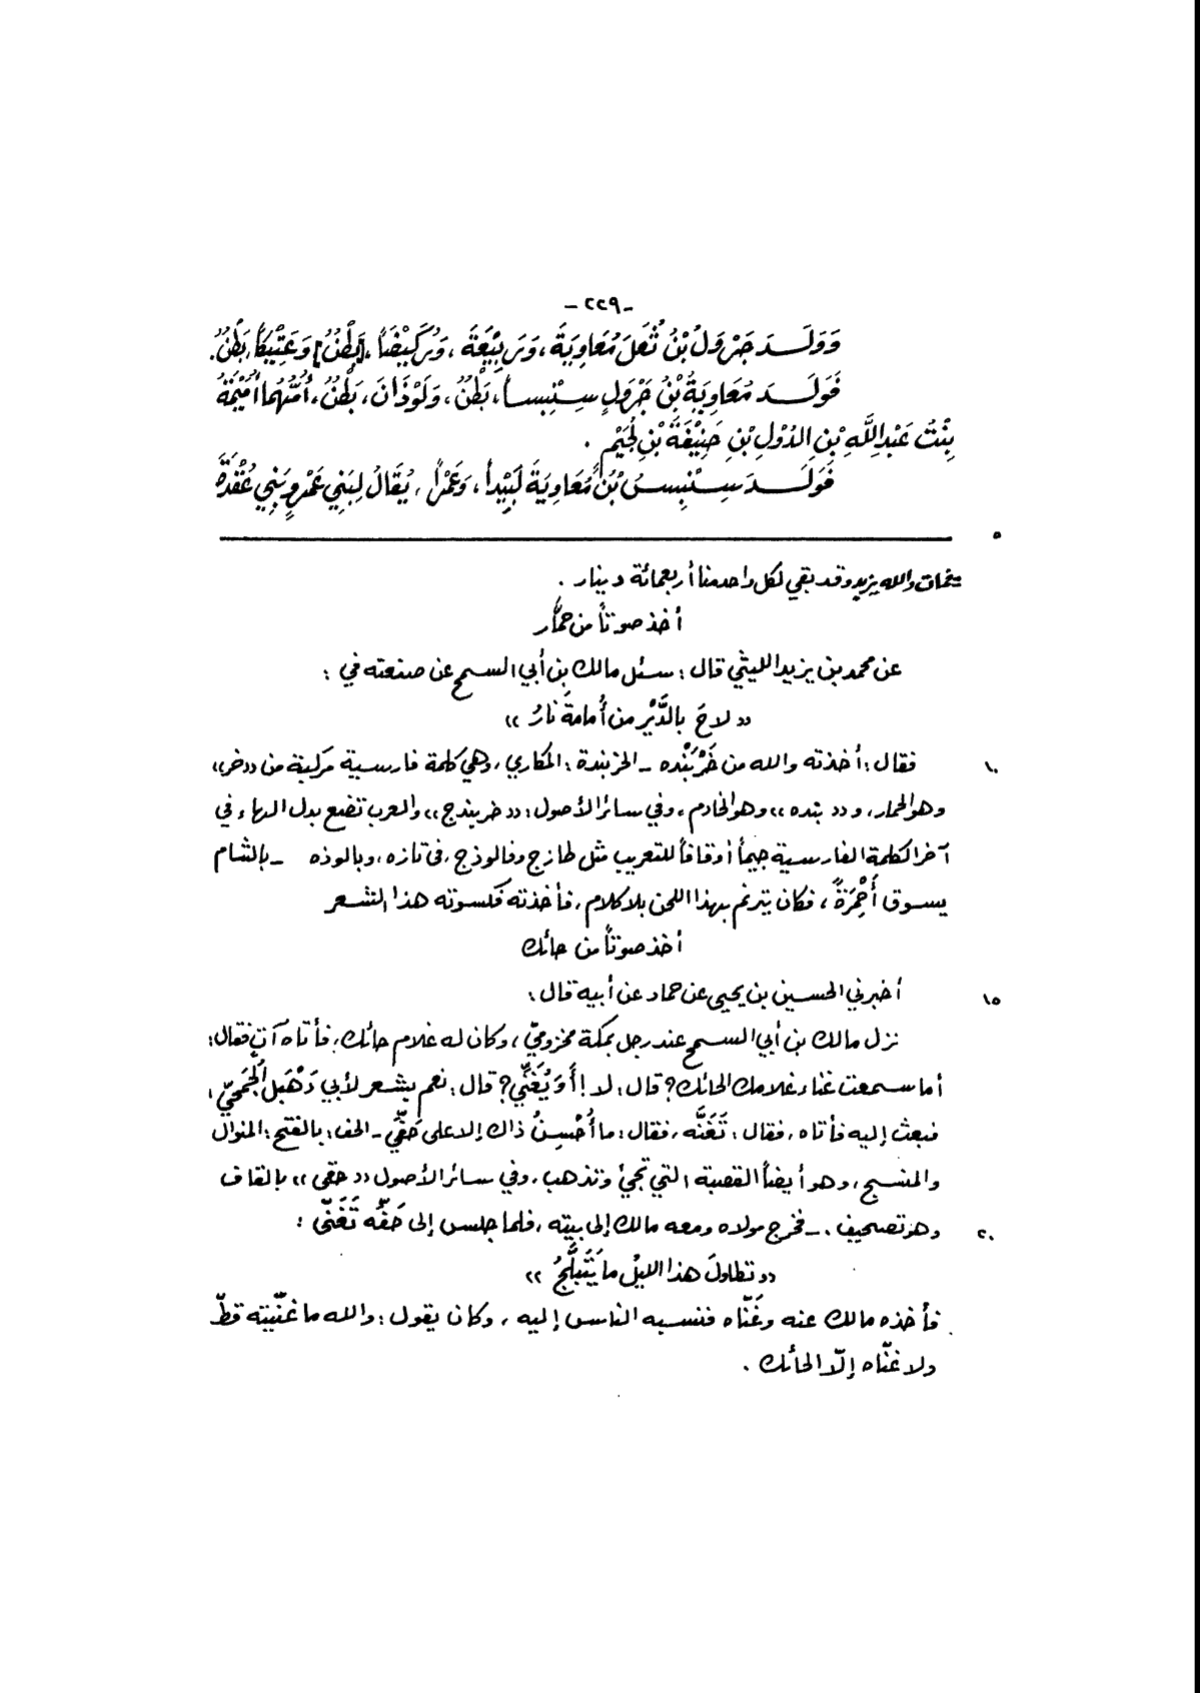 -٢٢٩-
وَوَلَـدَ جَرْوَلُ بْنُ ثُعَلَ مُعَاوِيَةَ، وَرَبِيْعَةَ، وَرَكِيْضَاً، [بَطْنٌ] وَعَتِيْكَاً، بَطْنٌ.
فَوَلَـدَ مُعَاوِيَةُ بْنُ جَرْوَلٍ سِـنْبِسـاً، بَطْنٌ، وَلَوْذَانَ، بَطْنٌ، أُمُّهُمَا أُمَيْمَةُ
بِنْتُ عَبْدِاللَّهِ بْنِ الدُّوْلِ بْنِ حَنِيْفَةَ بْنِ لُجَيْمٍ .
فَوَلَـدَ سِـنْبِسُ بْنُ مُعَاوِيَةَ لَبِيْداً، وَعَمْراً، يُقَالُ لِبَنِي عَمْرٍو بَنِي عُقْدَةَ
٥
= فمات والله يزيد وقد بقي لكل واحد منا أربعمائة دينار .
أخذ صوتاً من حمَّار
عن محمد بن يزيد الليثي قال: سئل مالك بن أبي السمح عن صنعته في :
« لاحَ بالدَّيْر من أُمامةَ نارُ »
١٠ فقال: أخذته والله من خَرْبَنْده - الخربندة: المكاري، وهي كلمة فارسية مركبة من «خر»
وهو الحمار، و« بنده » وهو الخادم، وفي سائر الأصول: « خربندج » والعرب تضع بدل الهاء في
آخر الكلمة الفارسية جيماً أو قافاً للتعريب مثل طازج وفالوذج، في تازه، وبالوذه - بالشام
يسوق أَحْمِرَةً، فكان يترنم بهذا اللحن بلا كلام، فأخذته فكسوته هذا الشعر
أخذ صوتاً من حائك
١٥ أخبرني الحسين بن يحيى عن حماد عن أبيه قال:
نزل مالك بن أبي السمح عند رجل بمكة مخزوميّ، وكان له غلام حائك، فأتاه آتٍ فقال:
أما سمعت غناء غلامك الحائك؟ قال: لا! أَوَ يُغَنِّي؟ قال: نعم بشعر لأبي دَهْبَل الجُمَحِيّ،
فبعث إليه فأتاه، فقال: تَغَنَّه، فقال: ما أُحْسِنُ ذاك إلا على حَفِّي - الحف: بالفتح: المنوال
والمنسج، وهو أيضاً القصبة التي تجيءُ وتذهب، وفي سائر الأصول « حقى » بالقاف
٢٠ وهو تصحيف . - فخرج مولاه ومعه مالك إلى بيته، فلما جلس إلى حَفِّه تَغَنَّى :
« تطاولَ هذا الليلُ ما يَتَبَلَّجُ »
فأخذه مالك عنه وغَنَّاه فنسبه الناس إليه، وكان يقول: والله ما غنّيته قطّ
ولا غنّاه إلّا الحائك .